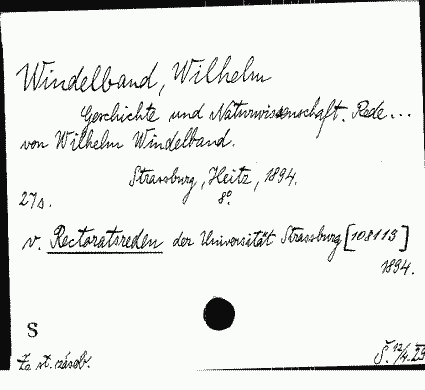 Windelband, Wilhelm
Geschichte und Naturwissenschaft. Rede...
von Wilhelm Windelband.
Strassburg, Heitz, 1894.
27 s. 8°.
v. Rectoratsreden der Universität Strassburg [108113]
1894.
S
Za st. zásob. Š. 12/4.29